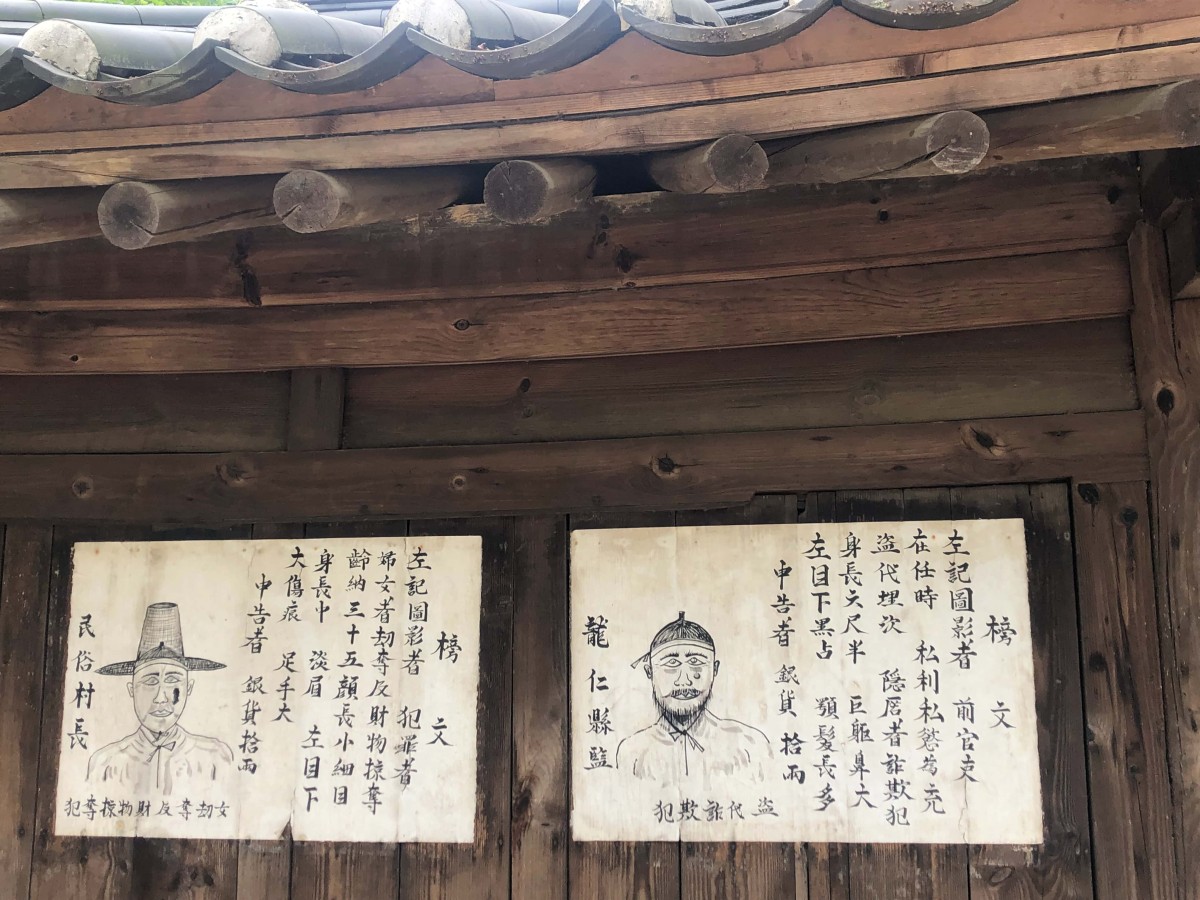 榜 文
左記圖影者 犯罪者
婦女者劫奪反財物掠奪
齡納三十五顔長小細目
身長中 淡眉 左目下
大傷痕 足手大
申告者 銀貨拾兩
女劫奪反財物掠奪犯
民俗村長
榜 文
左記圖影者 前官吏
在任時 私利私慾為充
盜代埋汝 隱居者詐欺犯
身長六尺半 巨軀鼻大
左目下黑占 顎髮長多
申告者 銀貨 拾兩
盜代詐欺犯
龍仁縣監